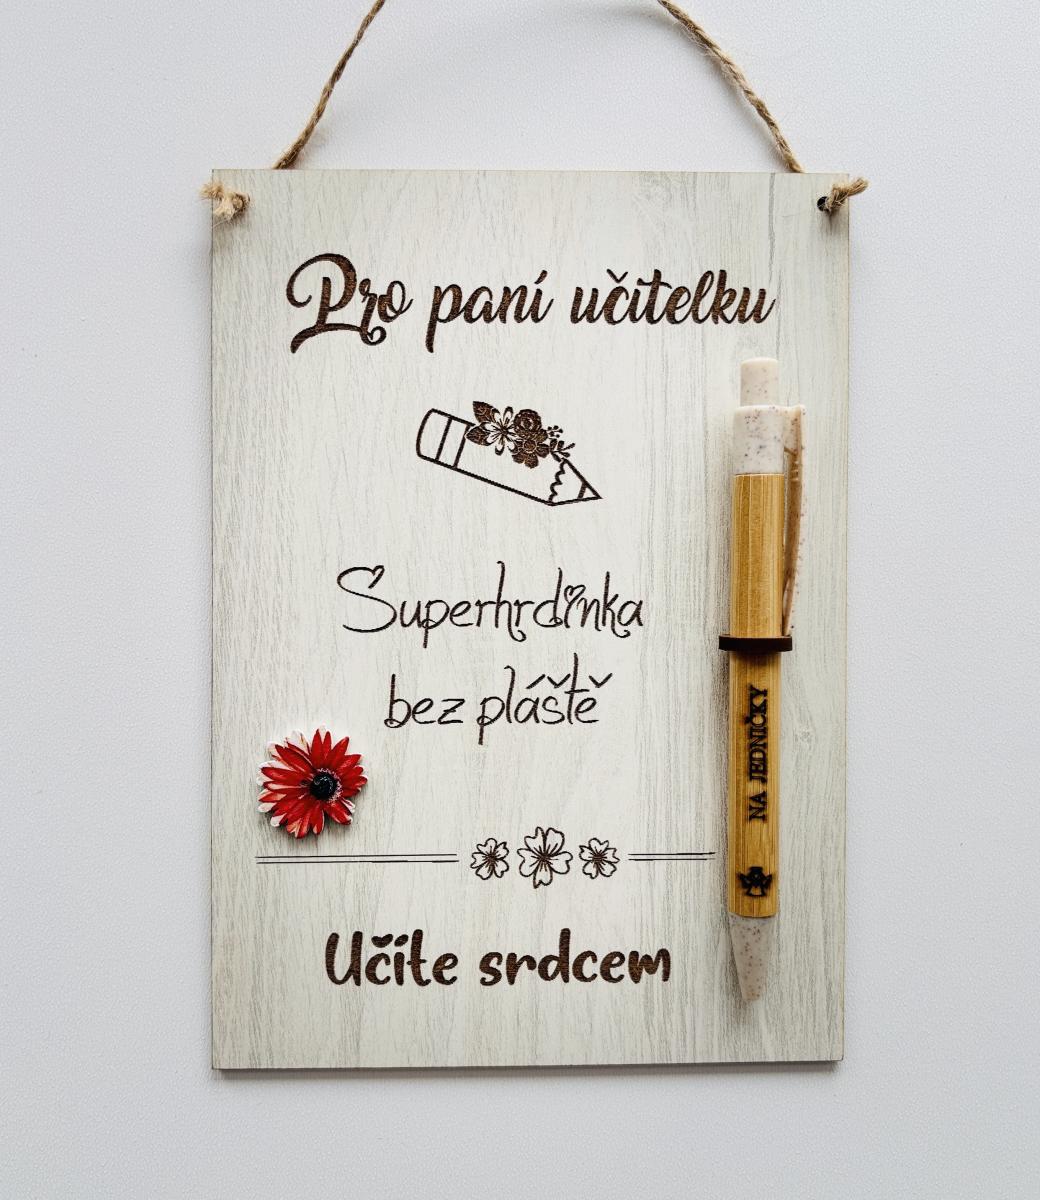 Pro paní učitelku
Superhrdinka
bez pláště
NA JEDNIČKY
Učíte srdcem